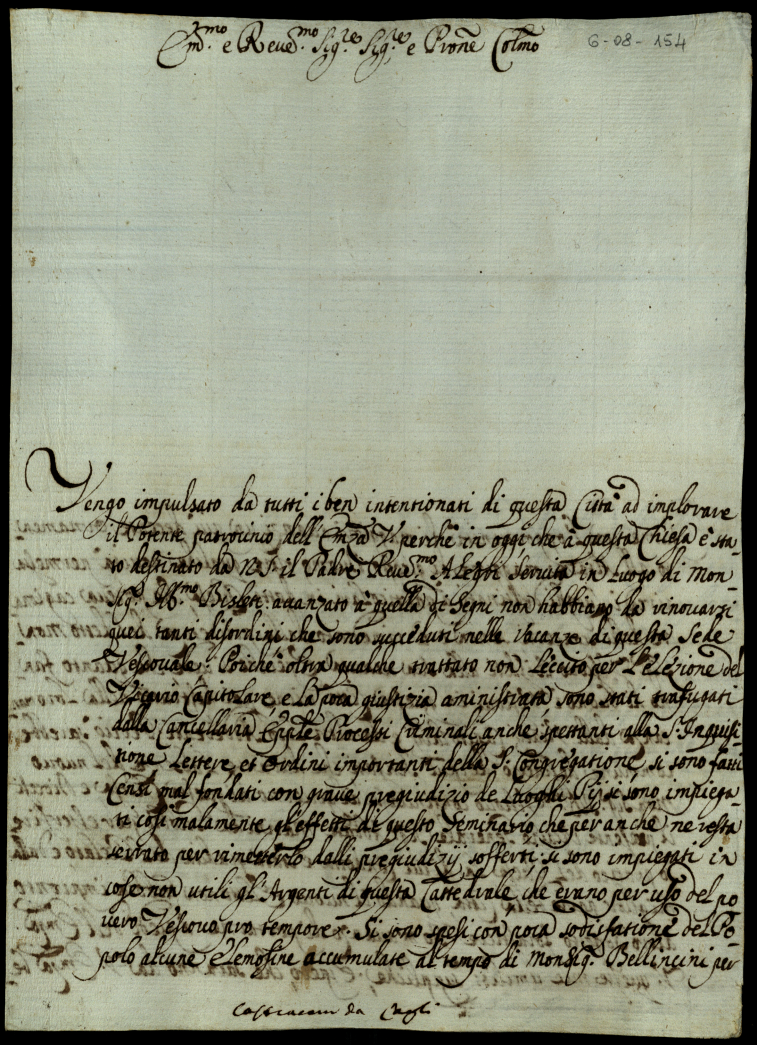 Em.mo e Reve.mo Sig.re Sig.re e Prone Colmo
6-08-154
Vengo impulsato da tutti i ben intentionati di questa Città ad implorare
il Potente patrocinio dell'Emza V. perche in oggi che à questa Chiesa è sta-
to destinato da N.S. il Padre Reve.mo Servita in Luogo di Mon-
sig.r Ill.mo Bisleti avanzato à quella di Segni non habbiano da rinovarsi
quei tanti disordini che sono succeduti nelle vacanze di questa Sede
Vescovale. Poiche oltre qualche trattato non Leccito per L'Elezione del
Vicario Capitolare e La poca giustizia aministrata sono stati trafugati
dalla Cancellaria Eple Processi Criminali anche spettanti alla S. Inquisi-
tione Lettere et Ordini importanti della S. Congregatione, si sono fatti
Censi mal fondati con grave pregiudizio de Luoghi Pij si sono impiega-
ti così malamente gl'effetti di questo Seminario che per anche ne resta
serrato per rimetterlo dalli pregiudizij sofferti, si sono impiegati in
cose non utili gl'Argenti di questa Cattedrale che erano per uso del po
vero Vescovo pro tempore. Si sono spesi con poca sodisfatione del Po-
polo alcune Elemosine accumulate al tempo di Monsig.r Bellincini per
da